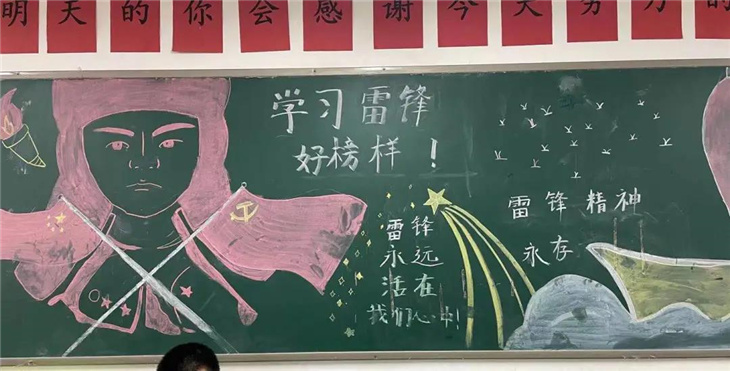 明天的你会感谢今天努力的
学习雷锋
好榜样！
雷锋
永远
活在
我们心中！
雷锋精神
永存